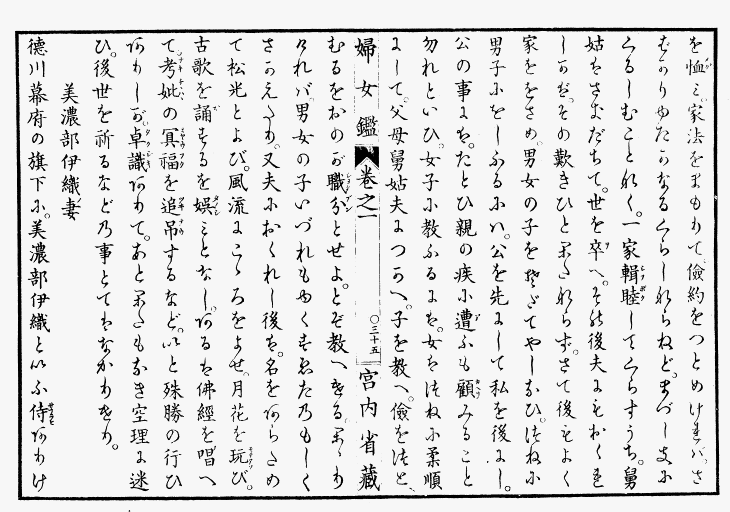 を恤ミ家法をまもりて。儉約をつとめけれバ、さ
ばかりゆたかなるくらしならねど。まづしきに
くるしむことなく。一家輯睦してくらすうち。舅
姑もさきだちて。世を卒へ。その後夫にもおくれ
しかば。その歎きひと方ならず。さて後もよく
家ををさめ。男女の子をそだてやしなひ。つねに
男子ををしふるにハ。公を先にして私を後にし。
公の事にハ。たとひ親の疾に遭ふも顧みること
勿れといひ。女子に教ふるには。女はつねに柔順
にして。父母舅姑夫につかへ。子を教へ。儉をつと
婦女鑑 巻之一 〇三十五 宮内省藏
むるをおのが職分とせよ。とぞ教へける。かゝり
けれバ男女の子いづれもやくすゑたのもしく
さかえたり。又夫におくれし後は。名をあらため
て松光とよび。風流にこゝろをよせ。月花を玩び。
古歌を誦するを娯ミとなし。あるは佛經を唱へ
て考妣の冥福を追吊するなど。いと殊勝の行ひ
ありしが卓識ありて。あとかたもなき空理に迷
ひ。後世を祈るなどの事とてはなかりけり。
美濃部伊織妻
徳川幕府の旗下に。美濃部伊織といふ侍ありけ